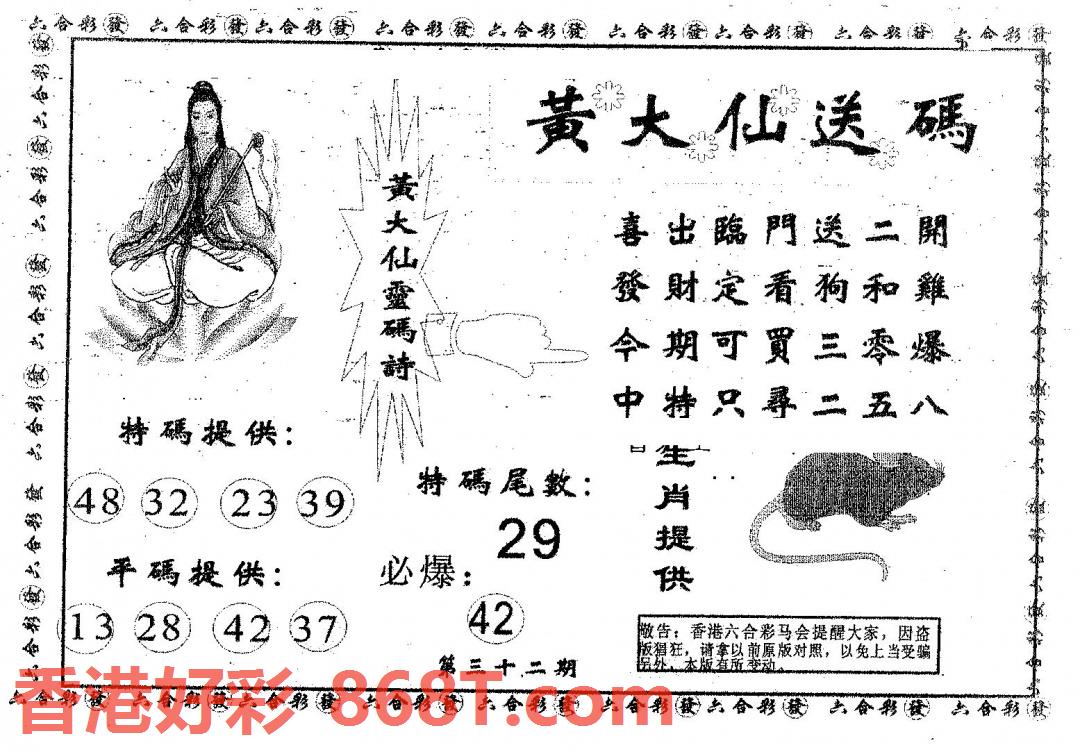 六合彩發 六合彩發六合彩發 六合彩發 六合彩發 六合彩發六合彩發 六合彩發 六合彩發
黃大仙送碼
黃大仙靈碼詩
喜出臨門送二開
發財定看狗和雞
今期可買三零爆
中特只尋二五八
特碼提供：
48 32 23 39
平碼提供：
13 28 42 37
特碼尾數：
29
必爆：
42
第三十二期
生肖提供
敬告：香港六合彩马会提醒大家，因盗
版猖狂，请拿以前原版对照，以免上当受骗
另外，本版有所变动。
香港好彩 868T.com